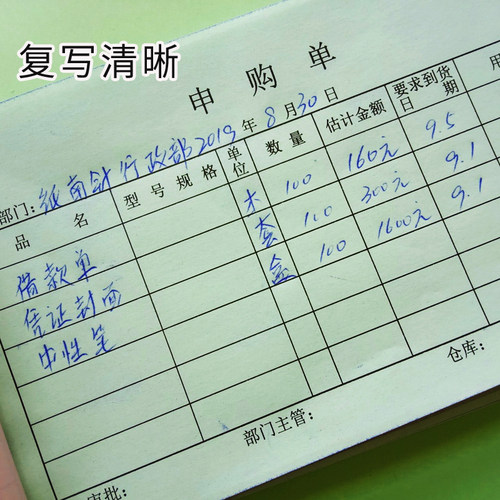 复写清晰
申购单
部门:纸南针行政部 2019年8月30日
品名 型号规格 单位 数量 估计金额 要求到货日期 用
借款单 本 100 160元 9.5
凭证封面 套 100 300元 9.1
中性笔 盒 100 1600元 9.1
审批: 部门主管: 仓库: